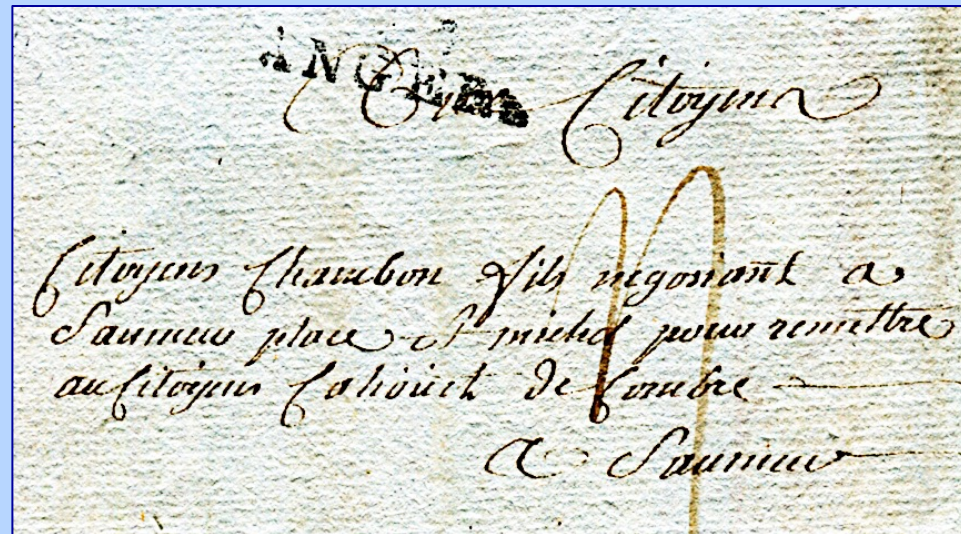 ANGERS
Citoyens
Citoyens Chambon fils negotiant a
Saumur place St michel pour remettre
au Citoyens Cahouet De Combre
a Saumur